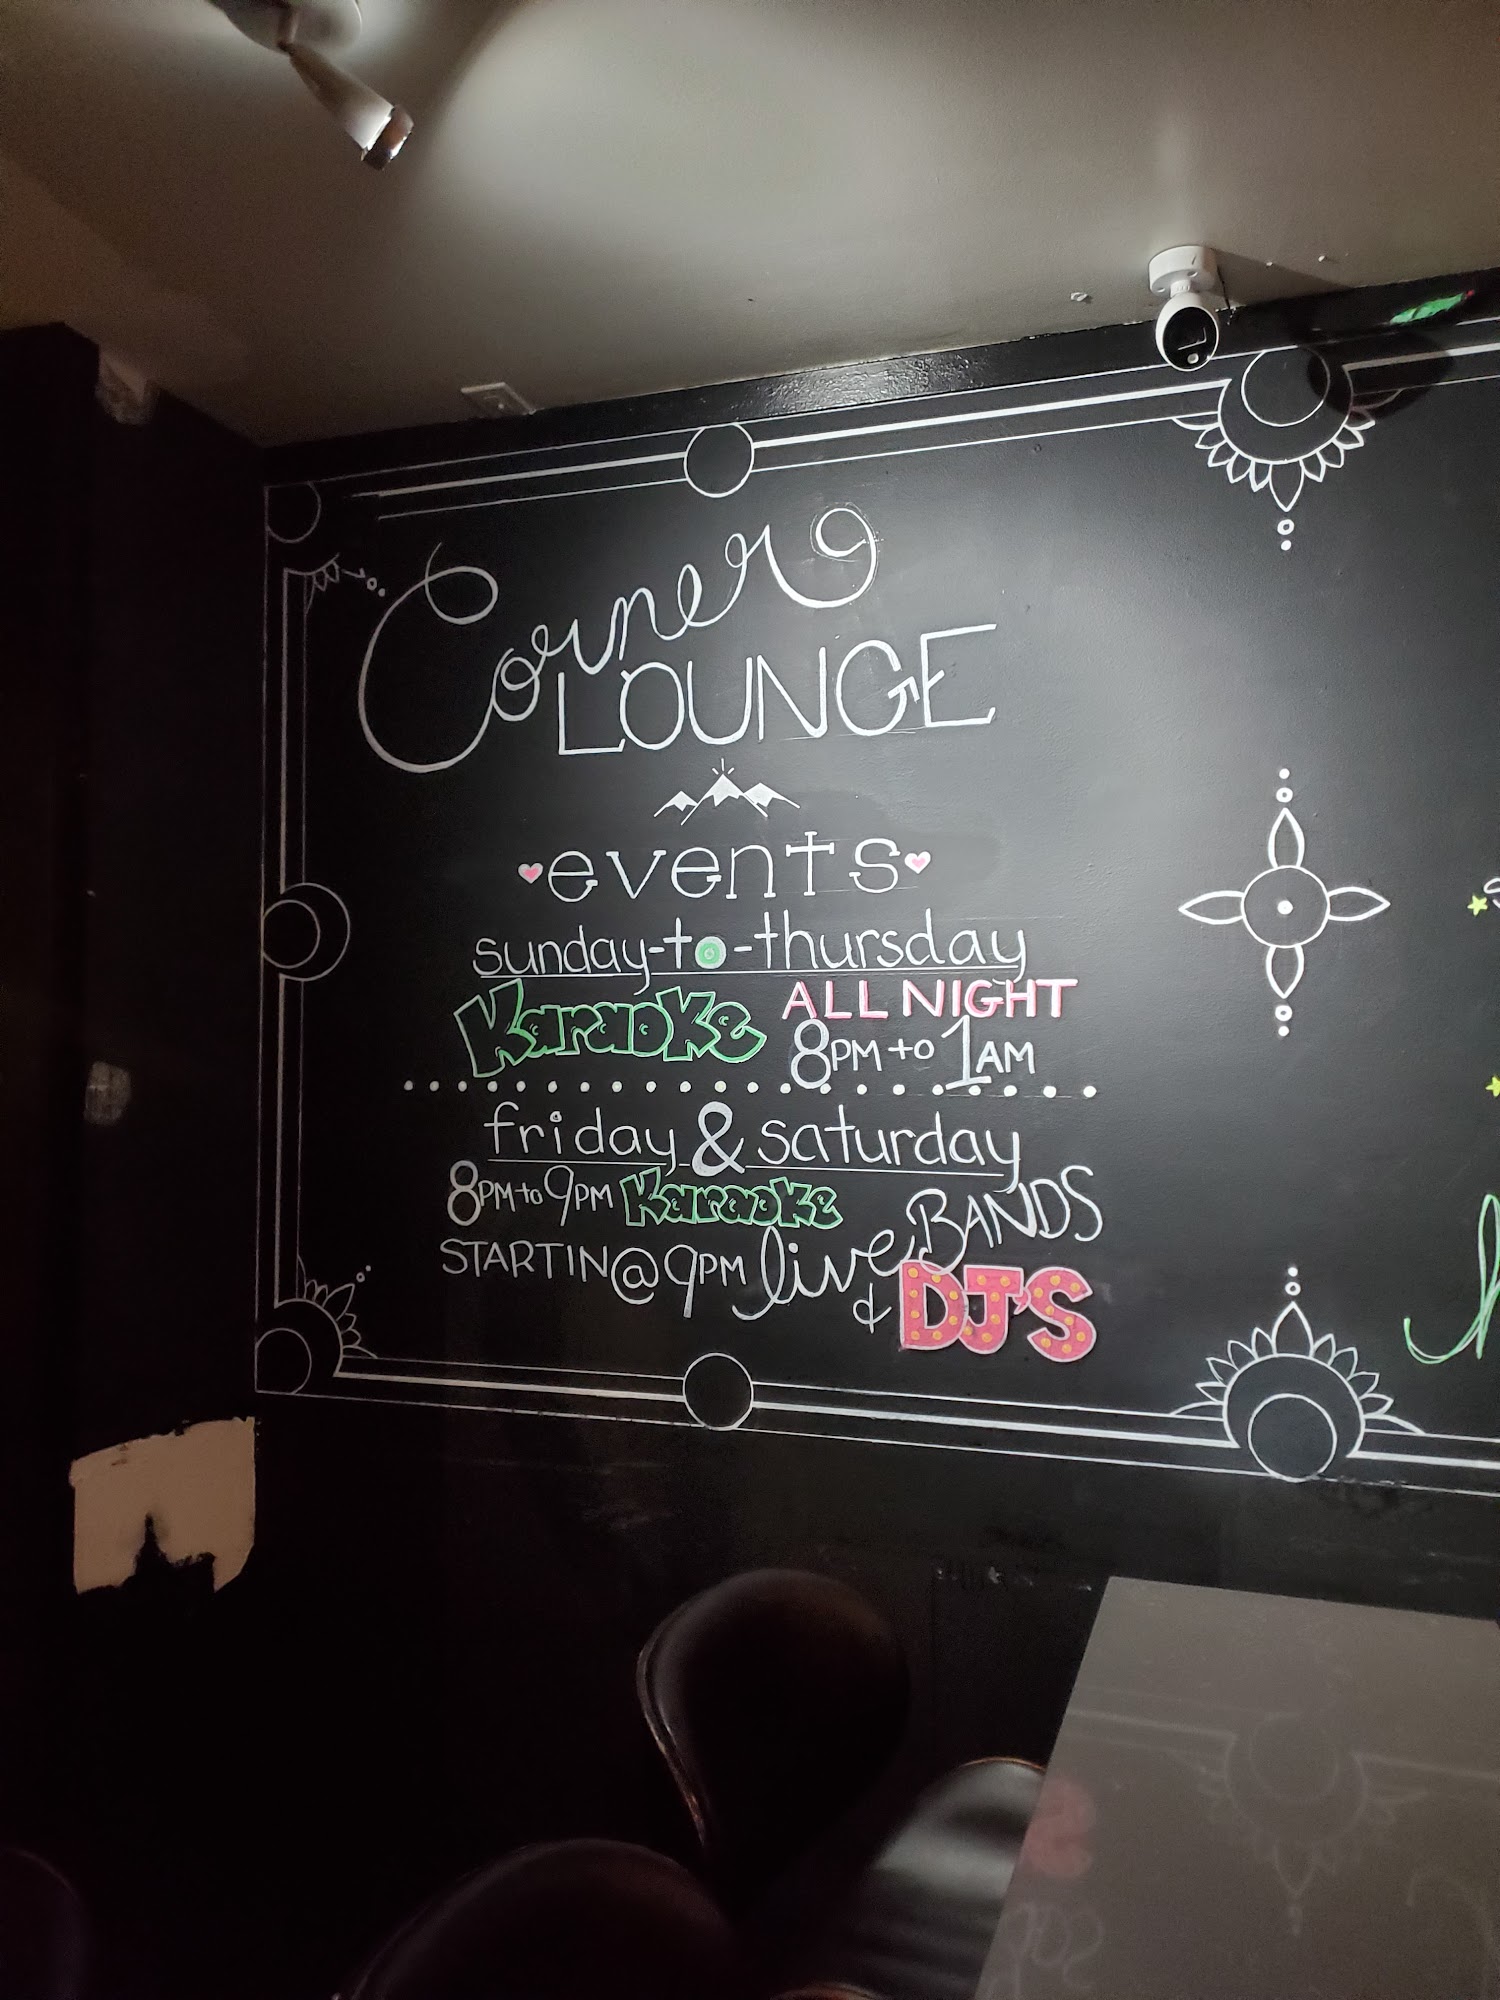 Corner
LOUNGE
events
sunday-to-thursday
Karaoke ALL NIGHT
8PM to 1AM
friday & saturday
8PM to 9PM Karaoke
STARTIN@ 9PM live BANDS
& DJ'S